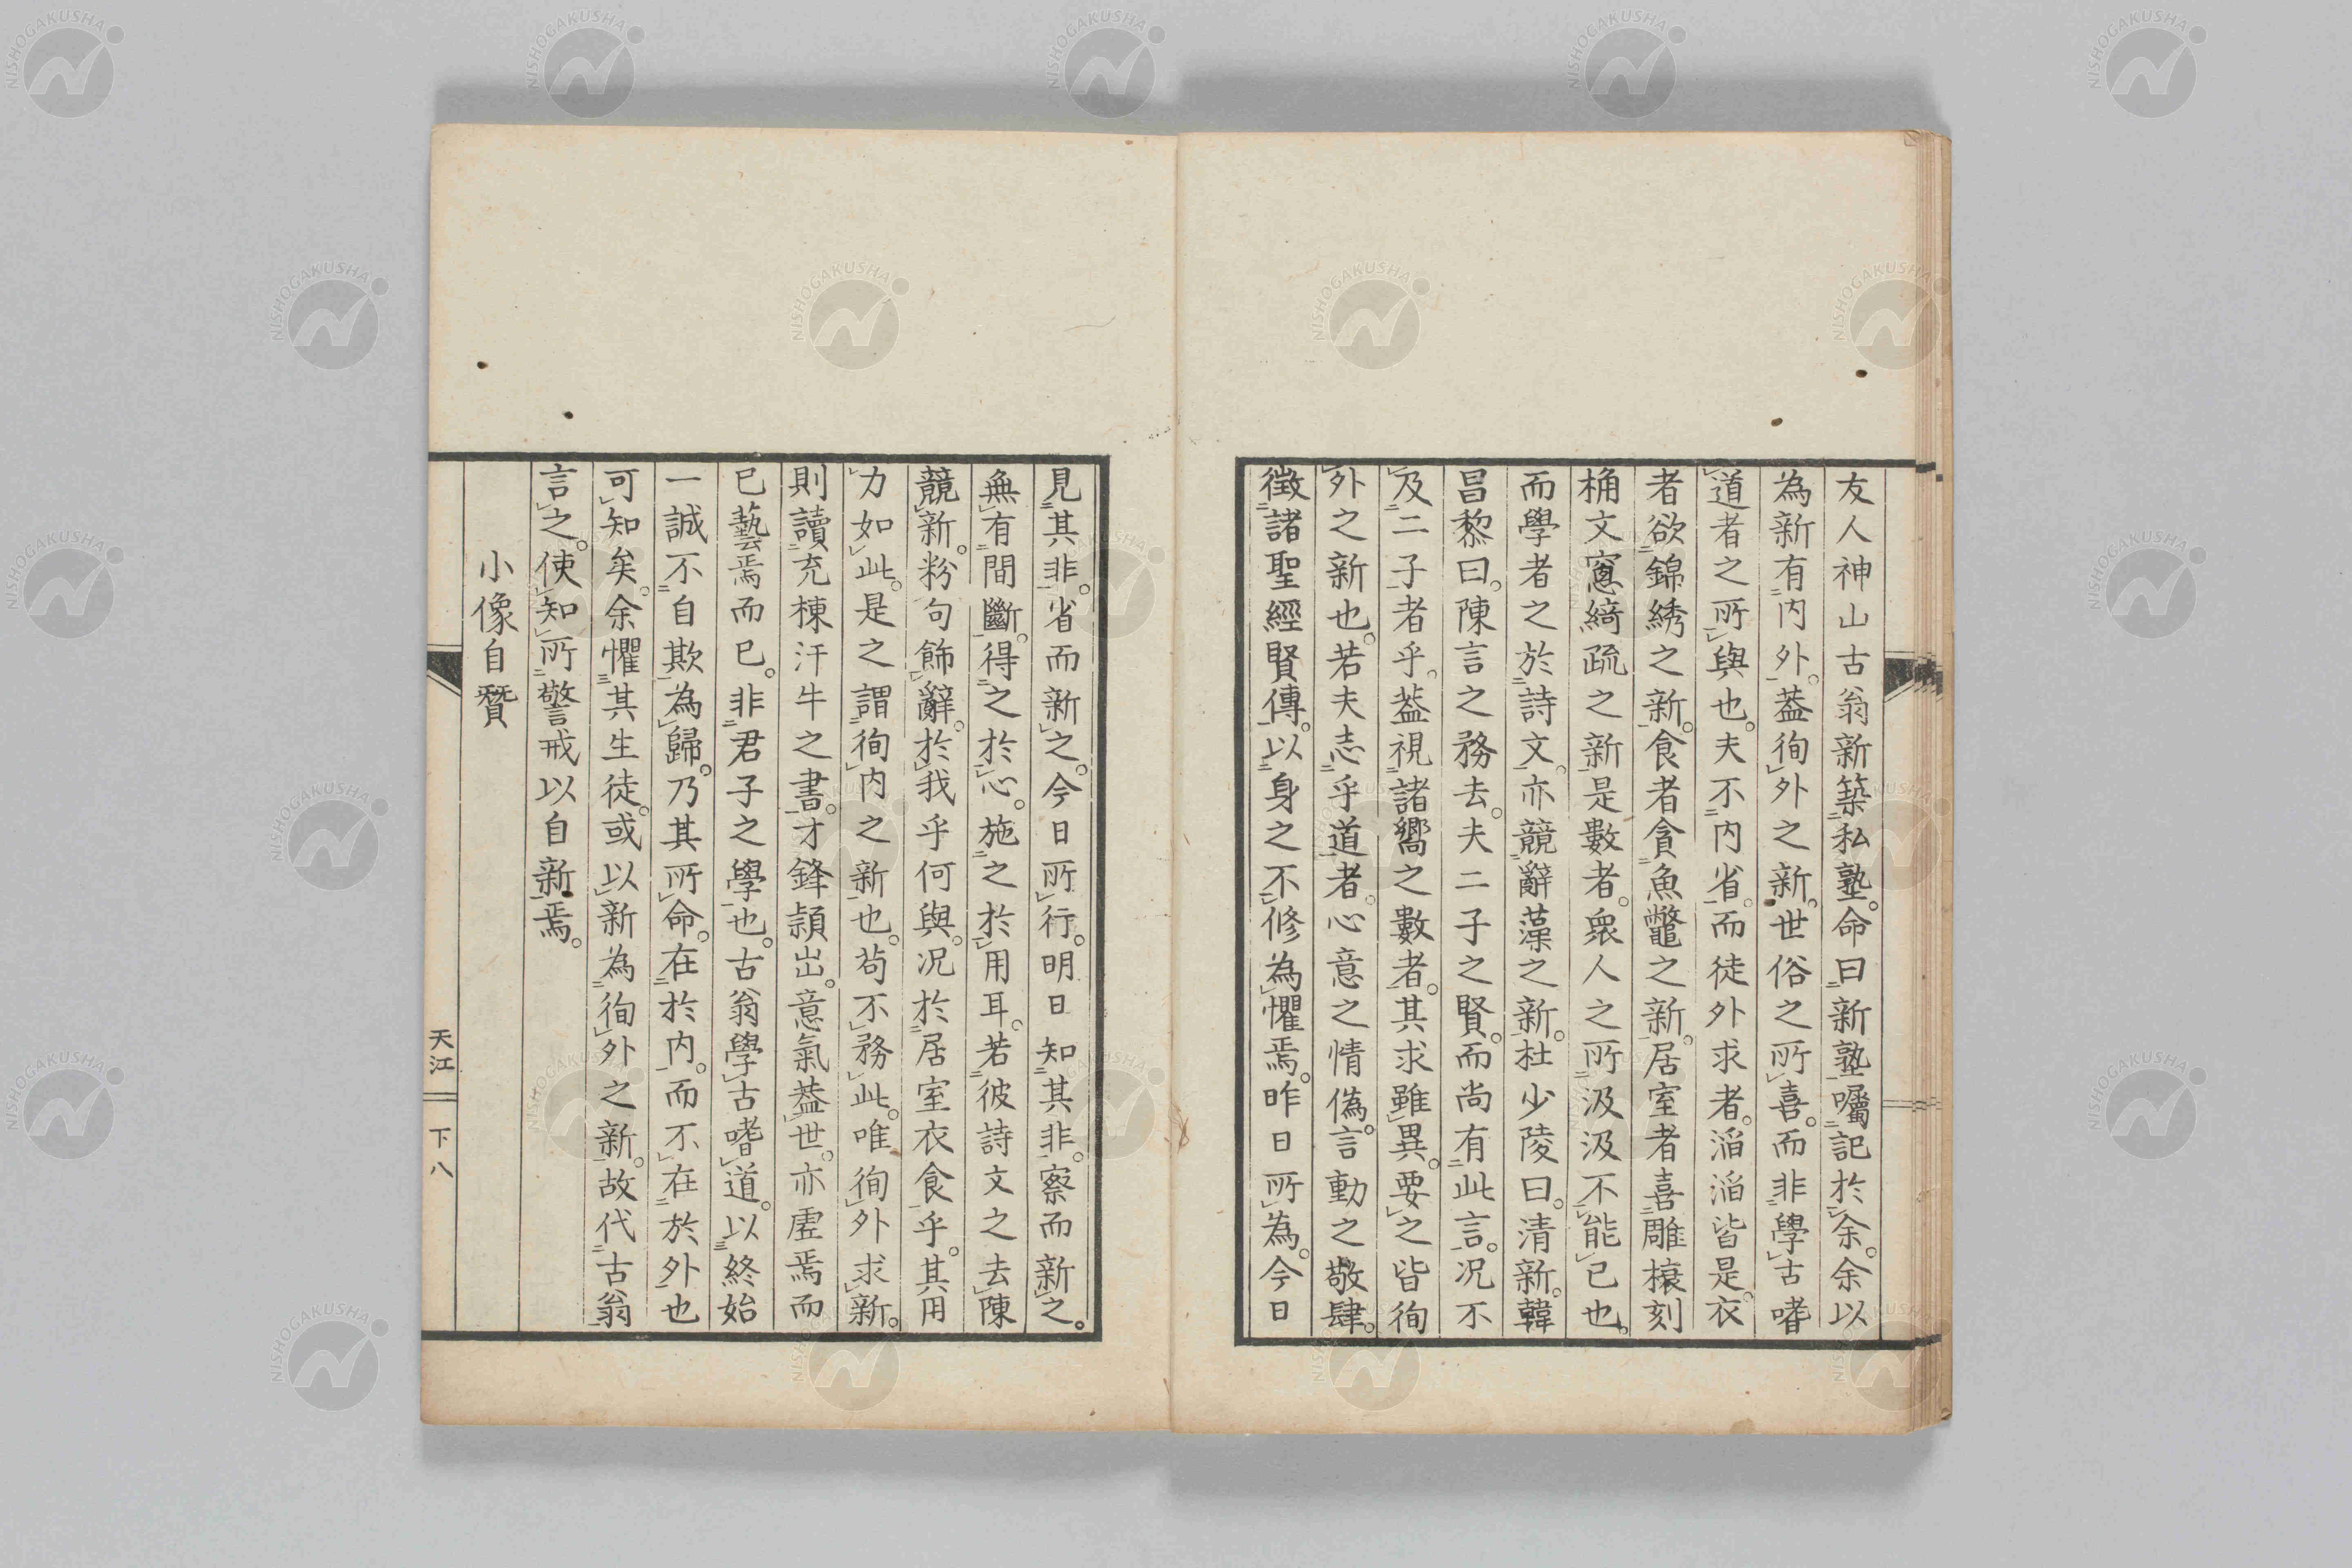 友人神山古翁新築私塾。命曰新塾囑記於余。余以
為新有內外。葢徇外之新。世俗之所喜。而非學古嗜
道者之所與也。夫不內省。而徒外求者。滔滔皆是。衣
者欲錦綉之新。食者貪魚鼈之新。居室者喜雕榱刻
桷文窻綺疏之新是數者。衆人之所汲汲不能已也。
而學者之於詩文。亦競辭藻之新。杜少陵曰。清新。韓
昌黎曰。陳言之務去。夫二子之賢。而尚有此言。况不
及二子者乎。葢視諸嚮之數者。其求雖異。要之皆徇
外之新也。若夫志乎道者。心意之情僞。言動之敬肆。
徵諸聖經賢傳。以身之不修為懼焉。昨日所為。今日
見其非。省而新之。今日所行。明日知其非。察而新之。
無有間斷。得之於心。施之於用耳。若彼詩文之去陳
競新。粉句飾辭。於我乎何與。况於居室衣食乎。其用
力如此。是之謂徇內之新也。茍不務此。唯徇外求新。
則讀充棟汗牛之書。才鋒頴出。意氣葢世。亦虛焉而
已藝焉而已。非君子之學也。古翁學古嗜道。以終始
一誠不自欺為歸。乃其所命。在於內。而不在於外也
可知矣。余懼其生徒。或以新為徇外之新。故代古翁
言之。使知所警戒以自新焉。
小像自贊
天江
下八
NISHOGAKUSHA